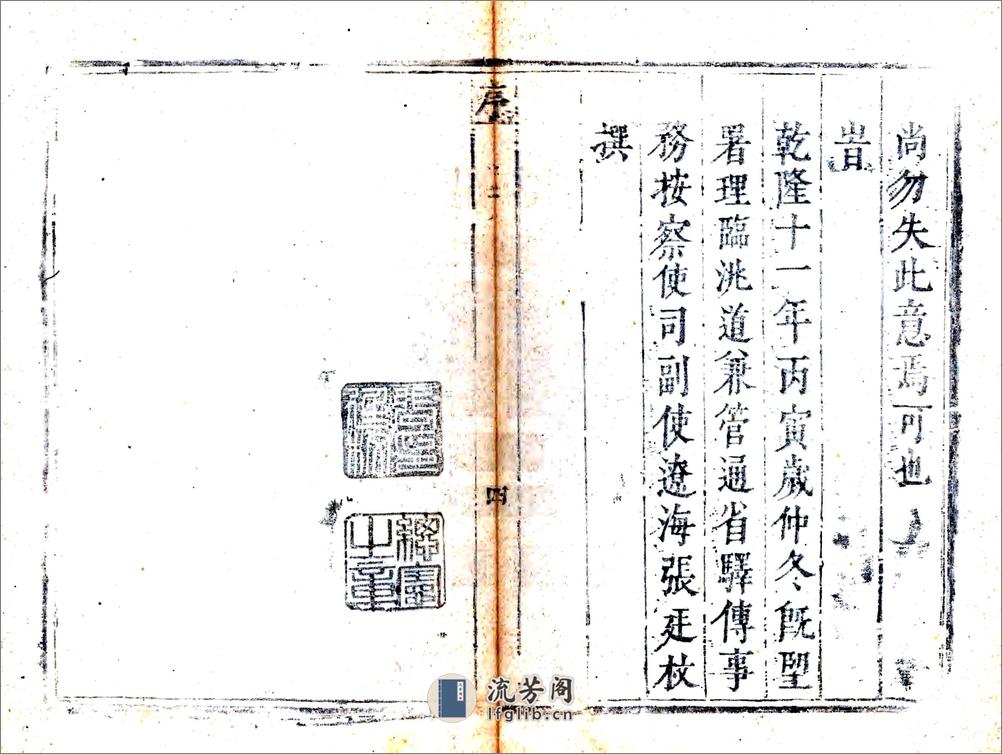 尚勿失此意焉可也
旹
乾隆十一年丙寅歲仲冬旣望
署理臨洮道兼管通省驛傳事
務按察使司副使遼海張廷枚
撰
序
四
之章
流芳阁
lfglib.cn